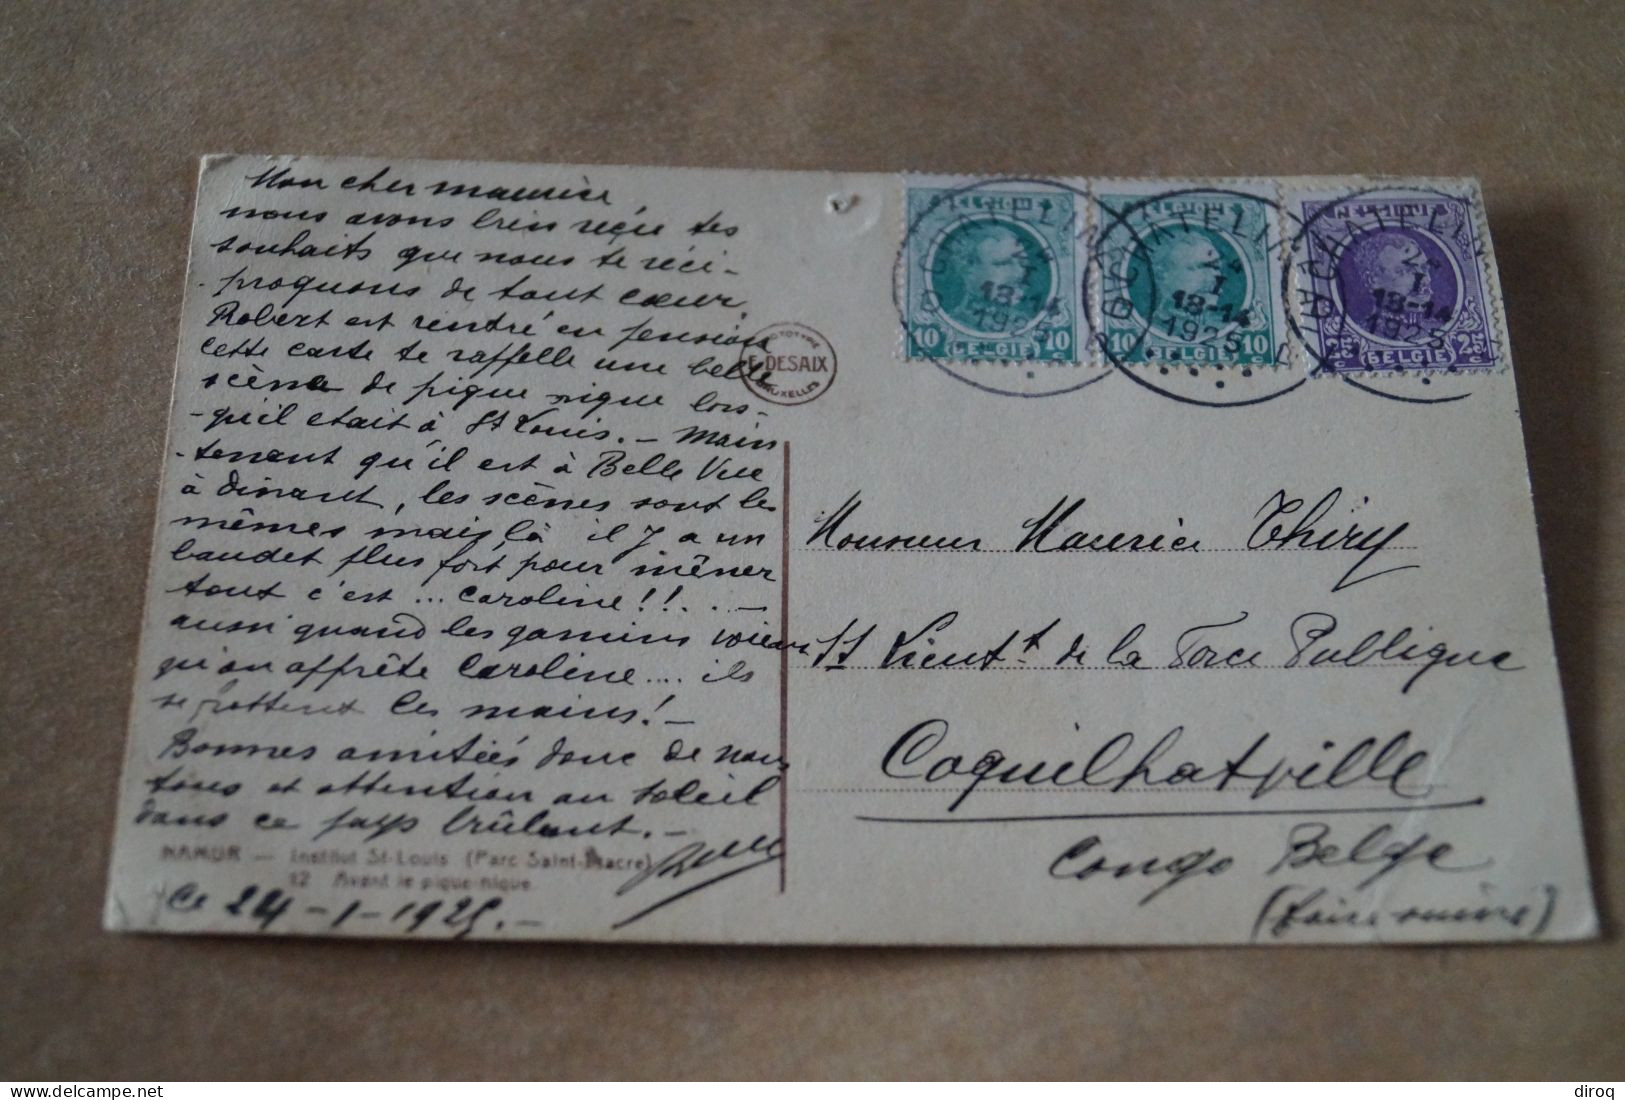 Mon cher maurice
nous avons bien reçu tes
souhaits que nous te réci-
-proquons de tout cœur.
Robert est rentré en pension
cette carte te rappelle une belle
scène de pique nique lors-
-qu'il etait à St Louis. - Main
-tenant qu'il est à Belle Vue
à dinant, les scènes sont les
mêmes mais là il y a un
baudet plus fort pour mêner
tout c'est ... Caroline!!...-
aussi quand les gamins voient
qu'on apprête Caroline .... ils
se frottent les mains! -
Bonnes amitiés donc de nous
tous et attention au soleil
dans ce pays brûlant. -
NAMUR — Institut St-Louis (Parc Saint-Fiacre)
12 Avant le pique-nique
Ce 24-1-1925.-
PHOTOTYPIE
E. DESAIX
BRUXELLES
CHATELINEAU
I
13-14
1925
10 BELGIE 10
CHATELINEAU
I
13-14
1925
10 BELGIE 10
CHATELINEAU
I
13-14
1925
25 BELGIE 25
Monsieur Maurice Thiry
St Lieutt de la Force Publique
Coquilhatville
Congo Belge
(faire suivre)
delcampe.net
diroq